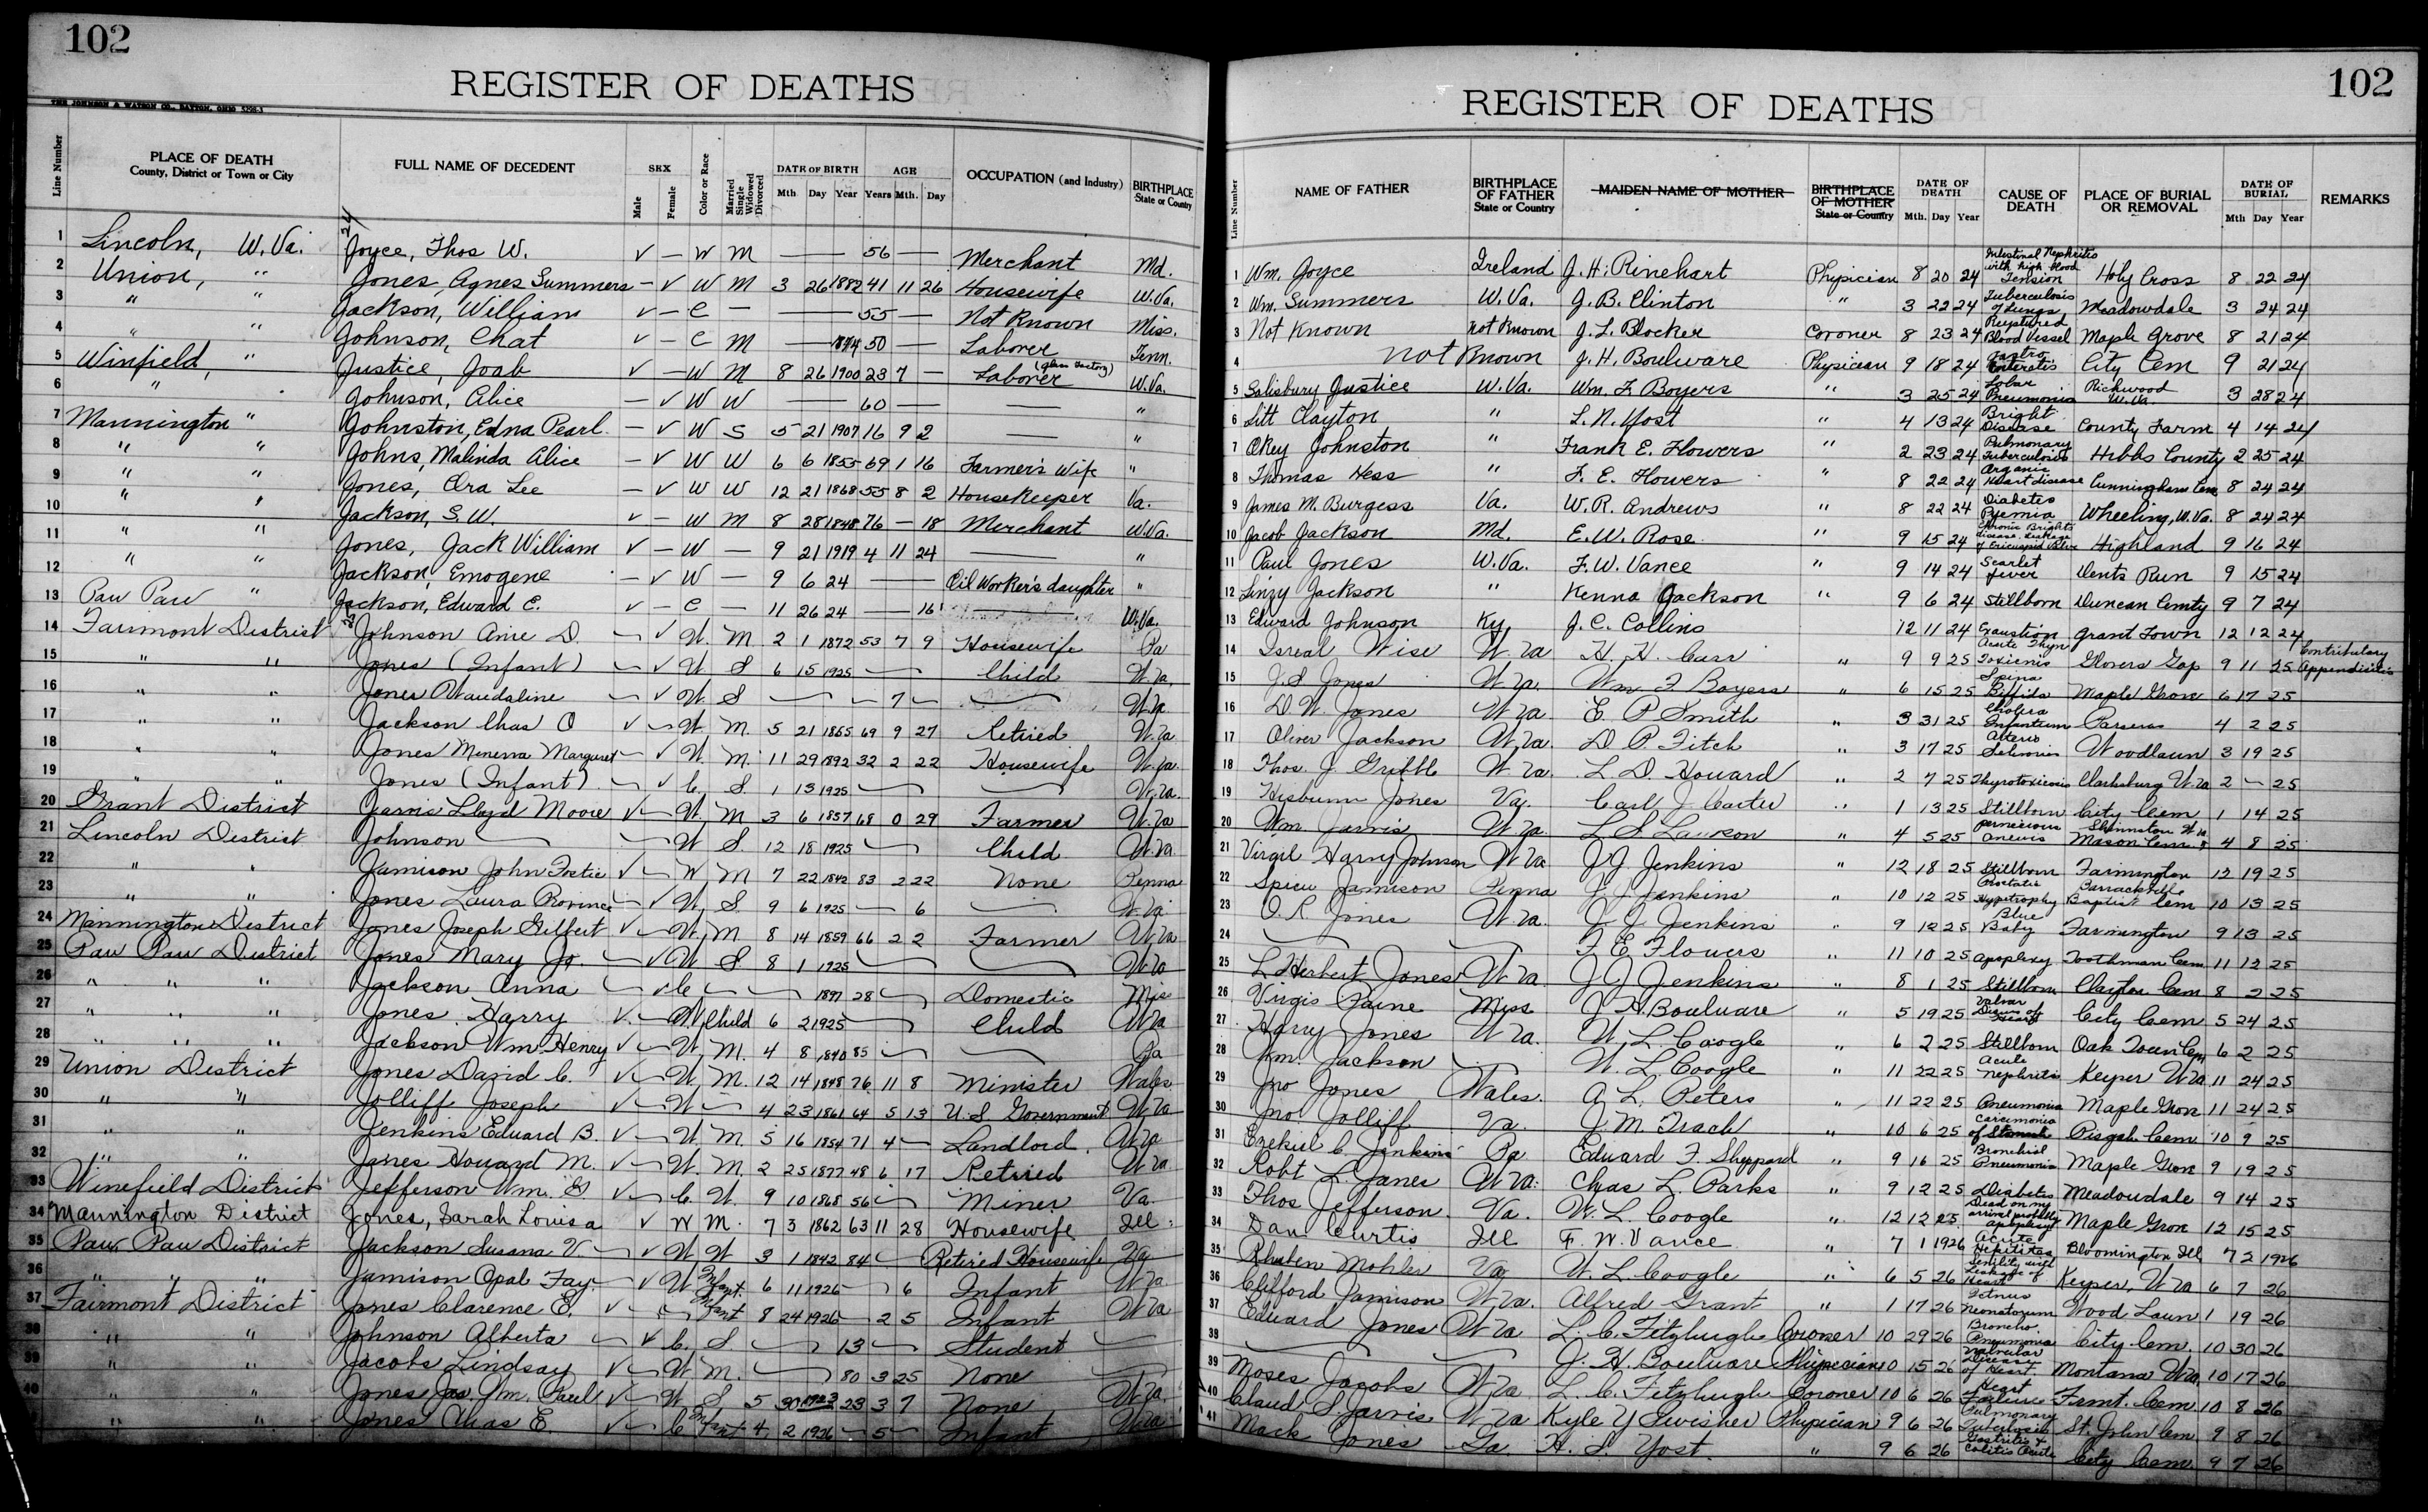 102
REGISTER OF DEATHS
THE JOHNSON & WATSON CO., DAYTON, OHIO
Line Number | PLACE OF DEATH County, District or Town or City | FULL NAME OF DECEDENT | SEX Male Female | Color or Race | Married Single Widowed Divorced | DATE OF BIRTH Mth. Day Year | AGE Years Mth. Day | OCCUPATION (and Industry) | BIRTHPLACE State or Country
24
1 Lincoln, W. Va. Joyce, Thos W. ✓ — W M — 56 — Merchant Md.
2 Union, " Jones, Agnes Summers — ✓ W M 3 26 1882 41 11 26 Housewife W.Va.
3 " " Jackson, William ✓ — C — — 55 — Not Known Miss.
4 " " Johnson, Chat ✓ — C M — 1874 50 — Laborer Tenn.
5 Winfield, " Justice, Joab ✓ — W M 8 26 1900 23 7 — Laborer (Glass Factory) W.Va.
6 " Johnson, Alice — ✓ W W — 60 — — "
7 Mannington " Johnston, Edna Pearl — ✓ W S 5 21 1907 16 9 2 — "
8 " " Johns, Malinda Alice — ✓ W W 6 6 1855 69 1 16 Farmer's Wife "
9 " " Jones, Ora Lee — ✓ W W 12 21 1868 55 8 2 Housekeeper Va.
10 " " Jackson, S. W. ✓ — W M 8 28 1848 76 — 18 Merchant W.Va.
11 " " Jones, Jack William ✓ — W — 9 21 1919 4 11 24 — "
12 " " Jackson, Emogene — ✓ W — 9 6 24 — Oil Worker's daughter "
13 Paw Paw " Jackson, Edward E. ✓ — C — 11 26 24 — 16 W.Va.
14 Fairmont District Johnson Anie D. — ✓ W. M. 2 1 1872 53 7 9 Housewife Pa
15 " " Jones (Infant) — ✓ W S 6 15 1925 — Child W.Va.
16 " " Jones Waudaline — ✓ W S — 7 — — W.Va
17 " " Jackson Chas O ✓ — W. M. 5 21 1855 69 9 27 Retired W.Va
18 " " Jones Minerva Margaret — ✓ W. M. 11 29 1892 32 2 22 Housewife W.Va.
19 " " Jones (Infant) — ✓ C. S. 1 13 1925 — — W.Va.
20 Grant District Jarvis Lloyd Moore ✓ — W. M 3 6 1857 68 0 29 Farmer W.Va
21 Lincoln District Johnson — — W S. 12 18 1925 — Child W.Va.
22 " " Jamison John Foster ✓ — W M 7 22 1842 83 2 22 None Penna
23 " " Jones Laura Province — ✓ W. S. 9 6 1925 — 6 — W.Va
24 Mannington District Jones Joseph Gilbert ✓ — W. M 8 14 1859 66 2 2 Farmer W.Va
25 Paw Paw District Jones Mary Jo. — ✓ W S 8 1 1925 — — W.Va
26 " " " Jackson Anna — ✓ C — — 1897 28 — Domestic Mis
27 " " " Jones Harry ✓ — W Child 6 2 1925 — Child W.Va
28 " " " Jackson Wm Henry ✓ — W. M. 4 8 1840 85 — — Pa
29 Union District Jones David C. ✓ — W. M. 12 14 1848 76 11 8 Minister Wales
30 " " Jolliff Joseph ✓ — W — 4 23 1861 64 5 13 U.S Government W.Va
31 " " Jenkins Edward B. ✓ — W. M. 5 16 1854 71 4 — Landlord W.Va
32 " " Janes Howard M. ✓ — W. M. 2 25 1877 48 6 17 Retired W.Va
33 Winefield District Jefferson Wm. ✓ — C. W. 9 10 1868 56 — Miner Va.
34 Mannington District Jones, Sarah Louisa ✓ W M. 7 3 1862 63 11 28 Housewife Ill.
35 Paw Paw District Jackson Susana V. — ✓ W W 3 1 1842 84 — Retired Housewife Va
36 " " " Jamison Opal Fay — ✓ W Infant 6 11 1926 — 6 Infant W.Va
37 Fairmont District Jones Clarence E. ✓ — C Infant 8 24 1926 — 2 5 Infant W.Va
38 " " Johnson Alberta — ✓ C. S. — 13 — Student —
39 " " Jacobs Lindsay ✓ — W. M. — 80 3 25 None —
40 " " Jones Jas Wm. Paul ✓ — W. S 5 30 1903 23 3 7 None W.Va.
" " Jones Chas E. ✓ — C Infant 4 2 1926 — 5 — Infant W.Va
102
REGISTER OF DEATHS
Line Number | NAME OF FATHER | BIRTHPLACE OF FATHER State or Country | MAIDEN NAME OF MOTHER | BIRTHPLACE OF MOTHER State or Country | DATE OF DEATH Mth. Day Year | CAUSE OF DEATH | PLACE OF BURIAL OR REMOVAL | DATE OF BURIAL Mth Day Year | REMARKS
1 Wm. Joyce Ireland J. H. Rinehart Physician 8 20 24 Intestinal Nephritis with high blood Tension Holy Cross 8 22 24
2 Wm. Summers W.Va. J. B. Clinton " 3 22 24 Tuberculosis of Lungs Meadowdale 3 24 24
3 Not Known not Known J. L. Blocker Coroner 8 23 24 Ruptured Blood Vessel Maple Grove 8 21 24
4 Not Known J. H. Boulware Physician 9 18 24 Gastro Enteretis City Cem 9 21 24
5 Salisbury Justice W.Va. Wm. F. Boyers " 3 25 24 Lobar Pneumonia Richwood W.Va. 3 28 24
6 Litt Clayton " L. N. Yost " 4 13 24 Bright Disease County Farm 4 14 24
7 Okey Johnston " Frank E. Flowers " 2 23 24 Pulmonary Tuberculosis Hibbs County 2 25 24
8 Thomas Hess " F. E. Flowers " 8 22 24 Organic Heart disease Cunningham Cem. 8 24 24
9 James M. Burgess Va. W. R. Andrews " 8 22 24 Diabetes Pyemia Wheeling, W.Va. 8 24 24
10 Jacob Jackson Md. E. W. Rose " 9 15 24 Chronic Brights disease Leakage of Tricuspid Valve Highland 9 16 24
11 Paul Jones W.Va. F. W. Vance " 9 14 24 Scarlet fever Dents Run 9 15 24
12 Linzy Jackson " Kenna Jackson " 9 6 24 Stillborn Duncan Cemty 9 7 24
13 Edward Johnson Ky. J. C. Collins 12 11 24 Exaustion Grant Town 12 12 24
14 Isreal Wise W.Va H. H. Carr " 9 9 25 Acute Thyro Toxicosis Glovers Gap 9 11 25 Contributary Appendicitis
15 J. S Jones W.Va. Wm F Boyers " 6 15 25 Spina Biffida Maple Grove 6 17 25
16 D. W. Jones W.Va E. P Smith " 3 31 25 Cholera Infantum Parsens 4 2 25
17 Oliver Jackson W.Va. D. P. Fitch " 3 17 25 Arterio Sclerosis Woodlawn 3 19 25
18 Thos. J. Gribble W.Va. L. D. Howard " 2 7 25 Thyrotoxicosis Clarksburg W.Va 2 — 25
19 Hisburn Jones Va. Carl J. Carter " 1 13 25 Stillborn City Cem 1 14 25
20 Wm. Jarvis W.Va. L. S. Lawson " 4 5 25 pernicious Anemia Shinnston W.Va. Mason Cem. 4 8 25
21 Virgil Harry Johnson W.Va J. J. Jenkins " 12 18 25 Stillborn Farmington 12 19 25
22 Spicer Jamison Penna J. J. Jenkins " 10 12 25 Prostatic Hypetrophy Barrackville Baptist Cem 10 13 25
23 O. R. Jones W.Va. J. J. Jenkins " 9 12 25 Blue Baby Farmington 9 13 25
24 — — F. E. Flowers " 11 10 25 Apoplexy Toothman Cem 11 12 25
25 L. Herbert Jones W.Va. J. J. Jenkins " 8 1 25 Stillborn Clayton Cem 8 2 25
26 Virgis Paine Miss J. H. Boulware " 5 19 25 Valvar Disease of Heart City Cem 5 24 25
27 Harry Jones W.Va. W. L. Coogle " 6 2 25 Stillborn Oak Town Cem 6 2 25
28 Wm. Jackson — W. L. Coogle " 11 22 25 Acute Nephritis Keyser W.Va 11 24 25
29 Jno Jones Wales. A. L. Peters " 11 22 25 Pneumonia Maple Grove 11 24 25
30 Jno. Jolliff Va. J. M. Trach " 10 6 25 Carcinomia of Stomach Pisgah Cem 10 9 25
31 Ezekiel C. Jenkins Pa Edward F. Sheppard " 9 16 25 Bronchial Pneumonia Maple Grove 9 19 25
32 Robt L. Janes W.Va. Chas L. Parks " 9 12 25 Diabetes Meadowdale 9 14 25
33 Thos Jefferson Va. W. L. Coogle " 12 12 25 Dead on my arrival probably apoplexy Maple Grove 12 15 25
34 Dan Curtis Ill F. W. Vance " 7 1 1926 Acute Hepititas Bloomington Ill. 7 2 1926
35 Rhuben Mohler Va W. L. Coogle " 6 5 26 Senility with Leakage of Heart Keyser, W.Va 6 7 26
36 Clifford Jamison W.Va. Alfred Grant " 1 17 26 Tetnus Neonatorum Wood Lawn 1 19 26
37 Edward Jones W.Va L. C. Fitzhugh Coroner 10 29 26 Broncho Pneumonia City Cem. 10 30 26
38 — — J. H. Boulware Physician 10 15 26 Valvular Disease of Heart Montana W.Va. 10 17 26
39 Moses Jacobs W.Va. L. C. Fitzhugh Coroner 10 6 26 Heart Failure Fairmt. Cem. 10 8 26
40 Claud S. Jarvis W.Va Kyle Y Swisher Physician 9 6 26 Pulmonary Tuberculosis St. John Cem 9 8 26
41 Mack Jones Ga. H. S. Yost. " 9 6 26 Gastritis & Colitis Acute City Cem. 9 7 26